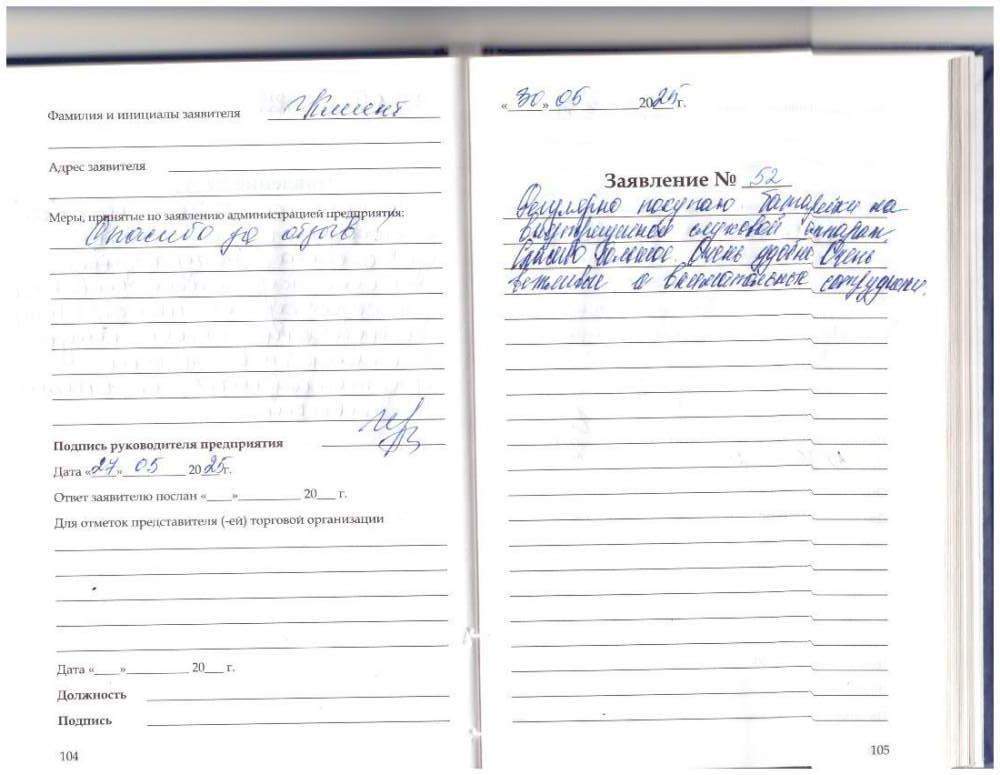 Фамилия и инициалы заявителя Клиент
Адрес заявителя
Меры, принятые по заявлению администрацией предприятия:
Спасибо за отзыв!
Подпись руководителя предприятия
Дата «27» 05 2025г.
Ответ заявителю послан «____»__________ 20___ г.
Для отметок представителя (-ей) торговой организации
Дата «____»__________ 20___ г.
Должность
Подпись
104
«30» 05 2025г.
Заявление № 52
Регулярно покупаю батарейки на
слуховой аппарат.
Спасибо большое. Очень удобно. Очень
вежливые и внимательные сотрудники.
105